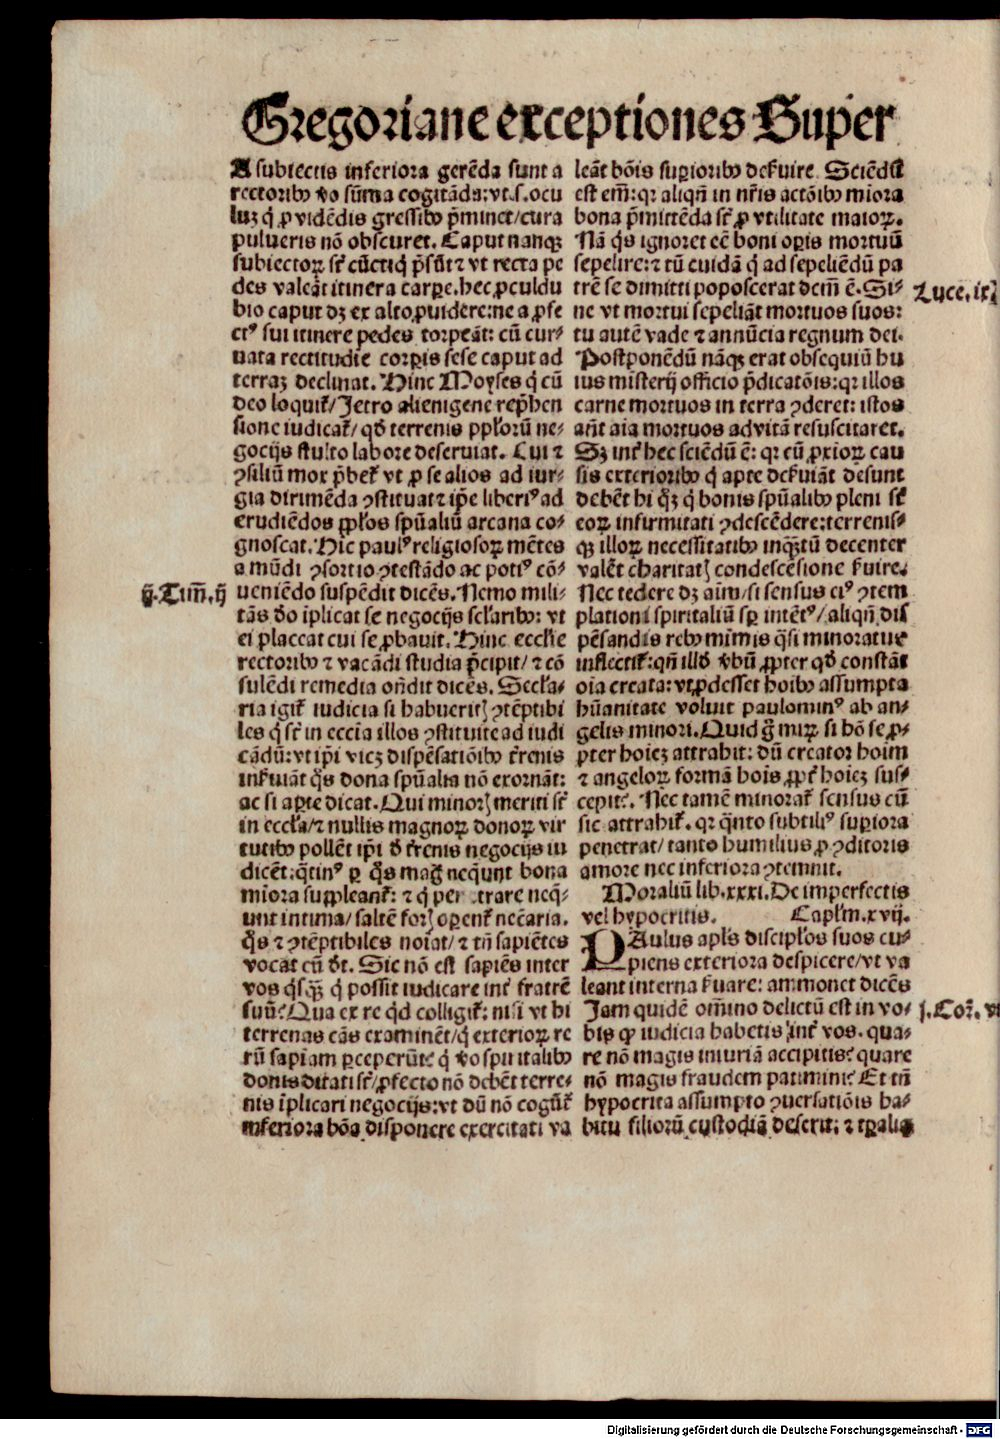 Gregoriane exceptiones Super
A subiectis inferiora gerēda sunt a
rectoribꝰ ꝟo sūma cogitāda: vt .s. ocu
luꝫ q̇ ꝓ vidēdis gressibꝰ p̄minet/ cura
pulueris nō obscuret. Caput nanqꝫ
subiectoꝝ sūt cūctiq̇ p̄sūt ⁊ vt recta pe
des valeāt itinera carꝑe. hec ꝓculdu
bio caput dꝫ ex alto ꝓuidere: ne a ꝓfe
ctꝰ sui itinere pedes torpeāt: cū cur⸗
uata rectitudīe corꝑis sese caput ad
terraꝫ declinat. Hinc Moyses q̇ cū
deo loquit̄/ Jetro alienigene rep̄hen
sione iudicat̄/ qđ terrenis ppl'orū ne⸗
gocijs stulto labore deseruiat. Cui ⁊
ꝯsiliū mox p̄bet̄ vt ꝓ se alios ad iur⸗
gia dirimēda ꝯstituat ⁊ ip̄e liberiꝰ ad
erudiēdos ppl'os spūaliū arcana co⸗
gnoscat. Hic paulꝰ religiosoꝝ mētes
a mūdi ꝯsortio ꝯtestādo ac potiꝰ cō⸗
ueniēdo suspēdit dicēs. Nemo mili⸗
ij. Tim̄. ij
tās deo īplicat se negocijs scl'aribꝰ: vt
ei placeat cui se ꝓbauit. Hinc eccl'ie
rectoribꝰ ⁊ vacādi studia p̄cipit/ ⁊ cō
sulēdi remedia oñdit dicēs. Secl'a⸗
ria igit̄ iudicia si habueritꝭ ꝯtēptibi
les q̇ sūt in eccīa illos ꝯstituite ad iudi
cādū: vt ip̄i viceꝫ dispēsatiōibꝰ t̄renis
inẜuiāt q̄s dona spūalia nō exornāt:
ac si aꝑte dicat. Qui minorꝭ meriti sūt
in eccl'a/ ⁊ nullis magnoꝝ donoꝝ vir
tutibꝰ pollēt ip̄i đ t̄renis negocijs iu
dicēt: q̄tinꝰ ꝑ q̄s mag̃ neq̄unt bona
miora suppleant̄: ⁊ q̇ pe[ne]trare neq̄⸗
unt intima/ saltē forꝭ oꝑent̄ necāria.
q̄s ⁊ ꝯtēptibiles noīat/ ⁊ tñ sapiētes
vocat cū đt. Sic nō est sapiēs inter
vos q̄sq̄ꝫ q̇ possit iudicare int̄ fratrē
suū? Qua ex re q̇d colligit̄: nisi vt hi
terrenas cās examinēt/ q̇ exterioꝝ re
rū sapiam ꝑceperūt? q̇ ꝟo spūitalibꝰ
donis ditati sūt/ ꝓfecto nō debēt terre⸗
nis īplicari negocijs: vt dū nō cogūt̄
inferiora bōa disponere exercitati va
leāt bōis suꝑioribꝰ deẜuire. Sciēdū
est em̄: qꝛ aliqñ in nr̄is actōibꝰ miora
bona p̄mittēda sūt ꝓ vtilitate maioꝝ.
Nā q̄s ignoret eē boni oꝑis mortuū
sepelire: ⁊ tū cuidā q̇ ad sepeliēdū pa
trē se dimitti poposcerat dcm̄ ē. Si⸗
Luce. ix
ne vt mortui sepeliāt mortuos suos:
tu autē vade ⁊ annūcia regnum dei.
Postponēdū nāqꝫ erat obsequiū hu
ius misterij officio p̄dicatōis: qꝛ illos
carne mortuos in terra ꝯderet: istos
añt aīa mortuos ad vitā resuscitaret.
Sꝫ int̄ hec sciēdū ē: qꝛ cū ꝓxioꝝ cau
sis exterioribꝰ q̇ apte deẜuiāt desunt
debēt hi q̄ꝫ q̇ bonis spūalibꝰ pleni sūt
eoꝝ infirmitati ꝯdescēdere: terrenis⸗
qꝫ illoꝝ necessitatibꝰ inq̄ꝫtū decenter
valēt charitatꝭ condescēsione ẜuire.
Nec tedere dꝫ aīm/ si sensus eiꝰ ꝯtem
plationi spiritaliū sp̄ intētꝰ/ aliqñ dis
pēsandis rebꝰ mīmis q̄si minoratur
inflectit̄: qñ illđ ꝟbū ꝓpter qđ constāt
oīa creata: vt ꝓdesset hoībꝰ assumpta
hūanitate voluit paulominꝰ ab an⸗
gelis minori. Quid g̃ miꝝ si hō se ꝓ⸗
pter hoīeꝫ attrahit: dū creator hoīm
⁊ angeloꝝ formā hoīs ꝓpt̄ hoīeꝫ sus⸗
cepit?. Nec tamē minorat̄ sensus cū
sic attrahit̄. qꝛ q̄nto subtiliꝰ suꝑiora
penetrat/ tanto humilius ꝓ ꝯditoris
amore nec inferiora ꝯtemnit.
Moraliū lib. xxxi. De imperfectis
vel hypocritis. Capl'm. xvij.
PAulus apl's discipl'os suos cu⸗
piens exteriora despicere/ vt va
leant interna ẜuare: ammonet dicēs
Jam quidē om̄ino delictū est in vo⸗
j. Cor̄. vi
bis ꝙ iudicia habetis int̄ vos. qua⸗
re nō magis iniuriā accipitis? quare
nō magis fraudem patimini? Et tñ
hypocrita assumpto ꝯuersatiōis ha⸗
bitu filiorū custodiā deserit: ⁊ tꝑalia
Digitalisierung gefördert durch die Deutsche Forschungsgemeinschaft - DFG